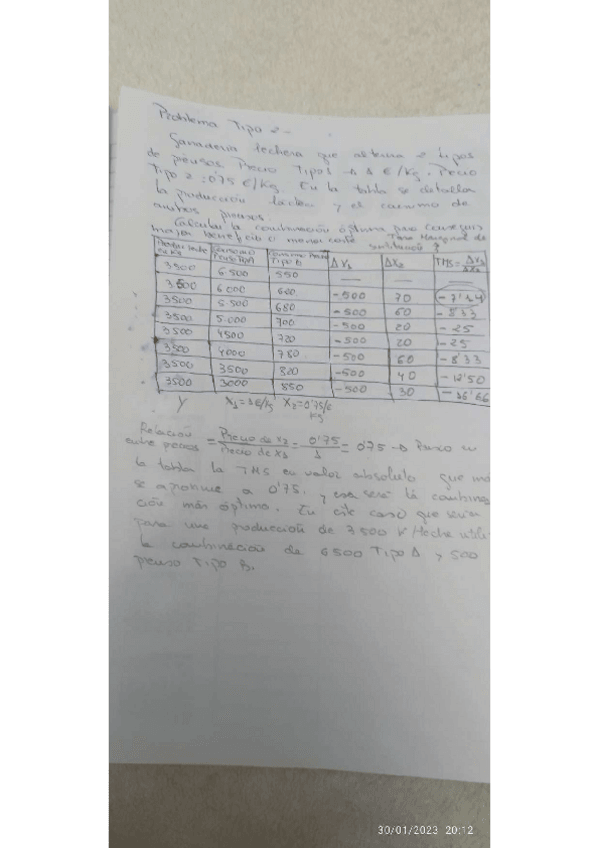 Problema Tipo 2-
Ganadería lechera que alterna 2 tipos
de piensos. Precio Tipo 1 → 1 €/kg. Precio
Tipo 2: 0'75 €/kg. En la tabla se detallan
la producción láctea y el consumo de
ambos piensos.
Calcular la combinación óptima para conseguir
mejor beneficio o menor coste Tasa Marginal de
sustitución
en kg Tipo B Δ X2
3500 6.500 550
3.500 6000 600 -500 70 -7'14
3500 5.500 680 -500 60 -8'33
3500 5.000 700 -500 20 -25
3500 4500 720 -500 20 -25
3500 4000 780 -500 60 -8'33
3500 3500 820 -500 40 -12'50
3500 3000 850 -500 30 -16'66
Y X1=1€/kg X2=0'75/€
kg
Relación
entre precios = Precio de X2 = 0'75 = 0'75 → Busco en
1
la tabla la TMS en valor absoluto que
se aproxime a 0'75, y esa será la
ción más óptima. En este caso que
para una producción de 3500
la combinación de 6500 Tipo A y 500
pienso Tipo B.
30/01/2023 20:12